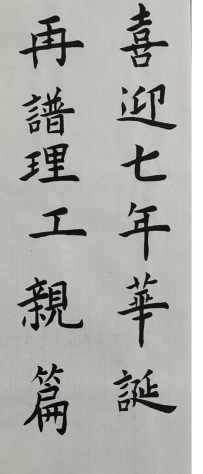 喜迎七年華誕
再譜理工親篇